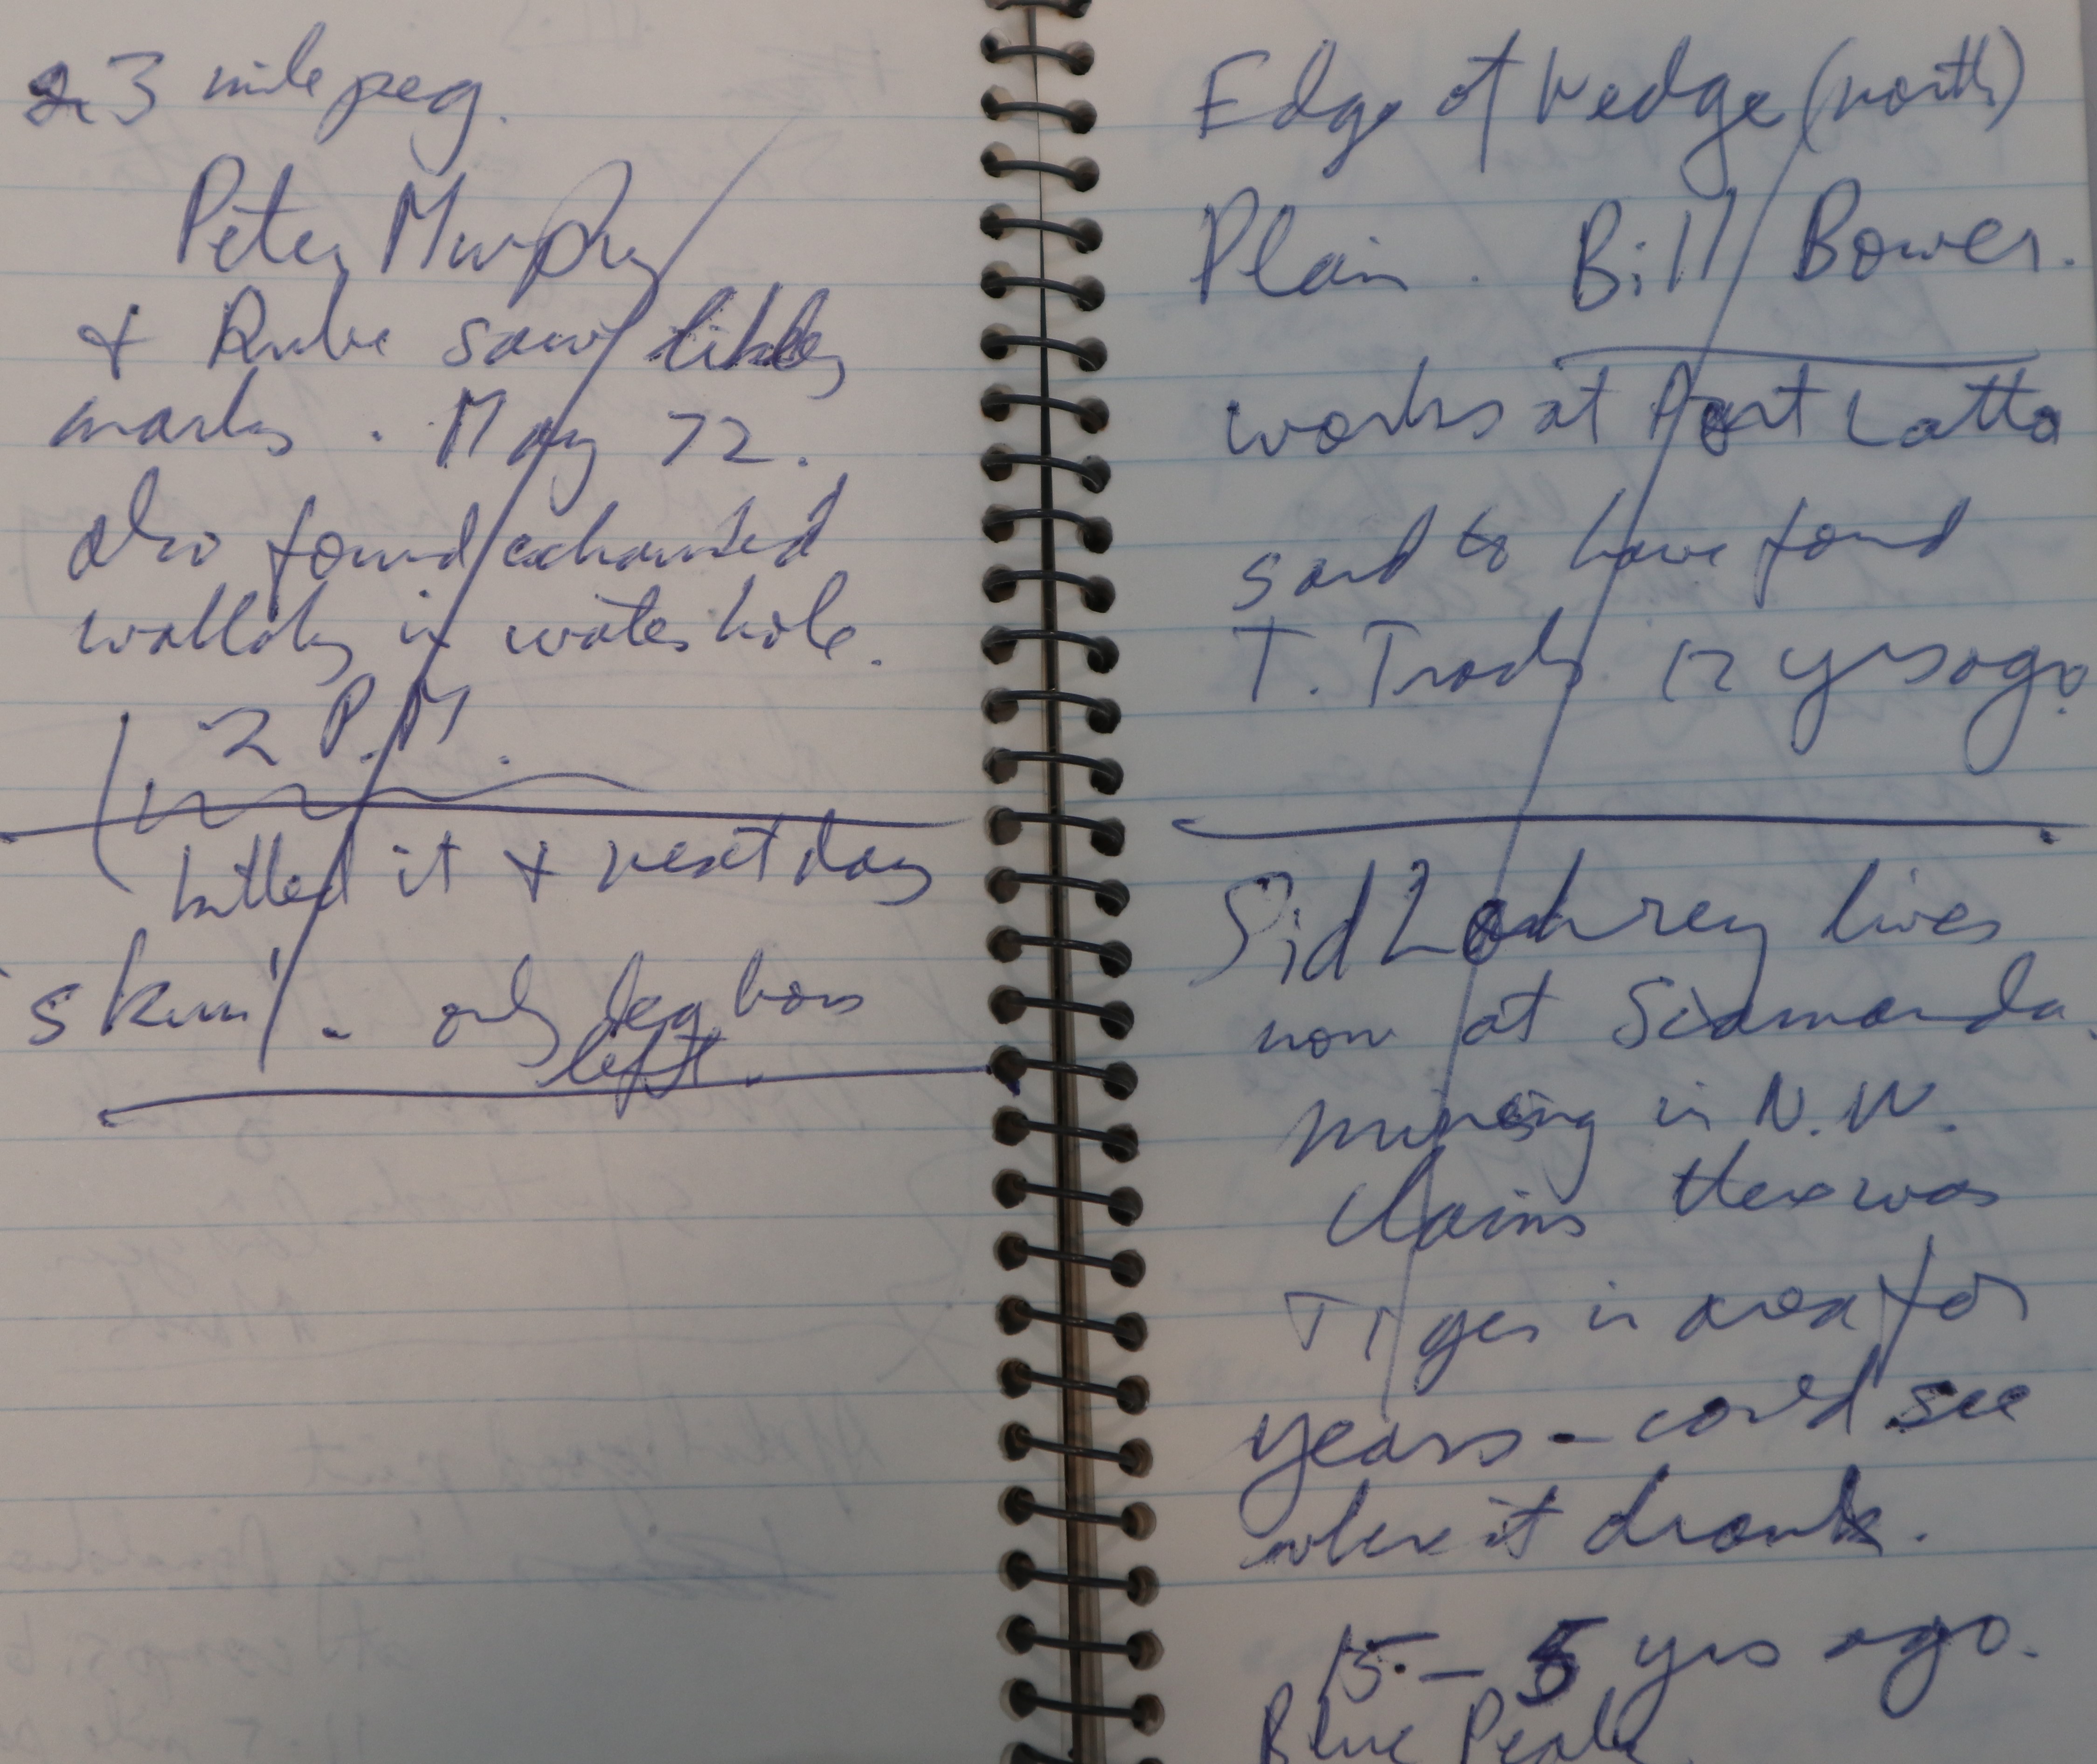 23 mile peg.
Peter Murphy
+ Rube saw likely
marks. May 72.
also found exhausted
wallaby in water hole.
2 P.M.
killed it + next day
skun'. - only leg bones
left.
Edge of Wedge (north)
Plain. Bill Bower.
works at Port Latta
said to have found
T. Trads 12 yrs ago.
Sid Lohrey lives
now at Sisters
mining in N.W.
Claims there was
Tiger in area for
years - could see
where it drank.
15 - 5 yrs ago.
Blue Peak.